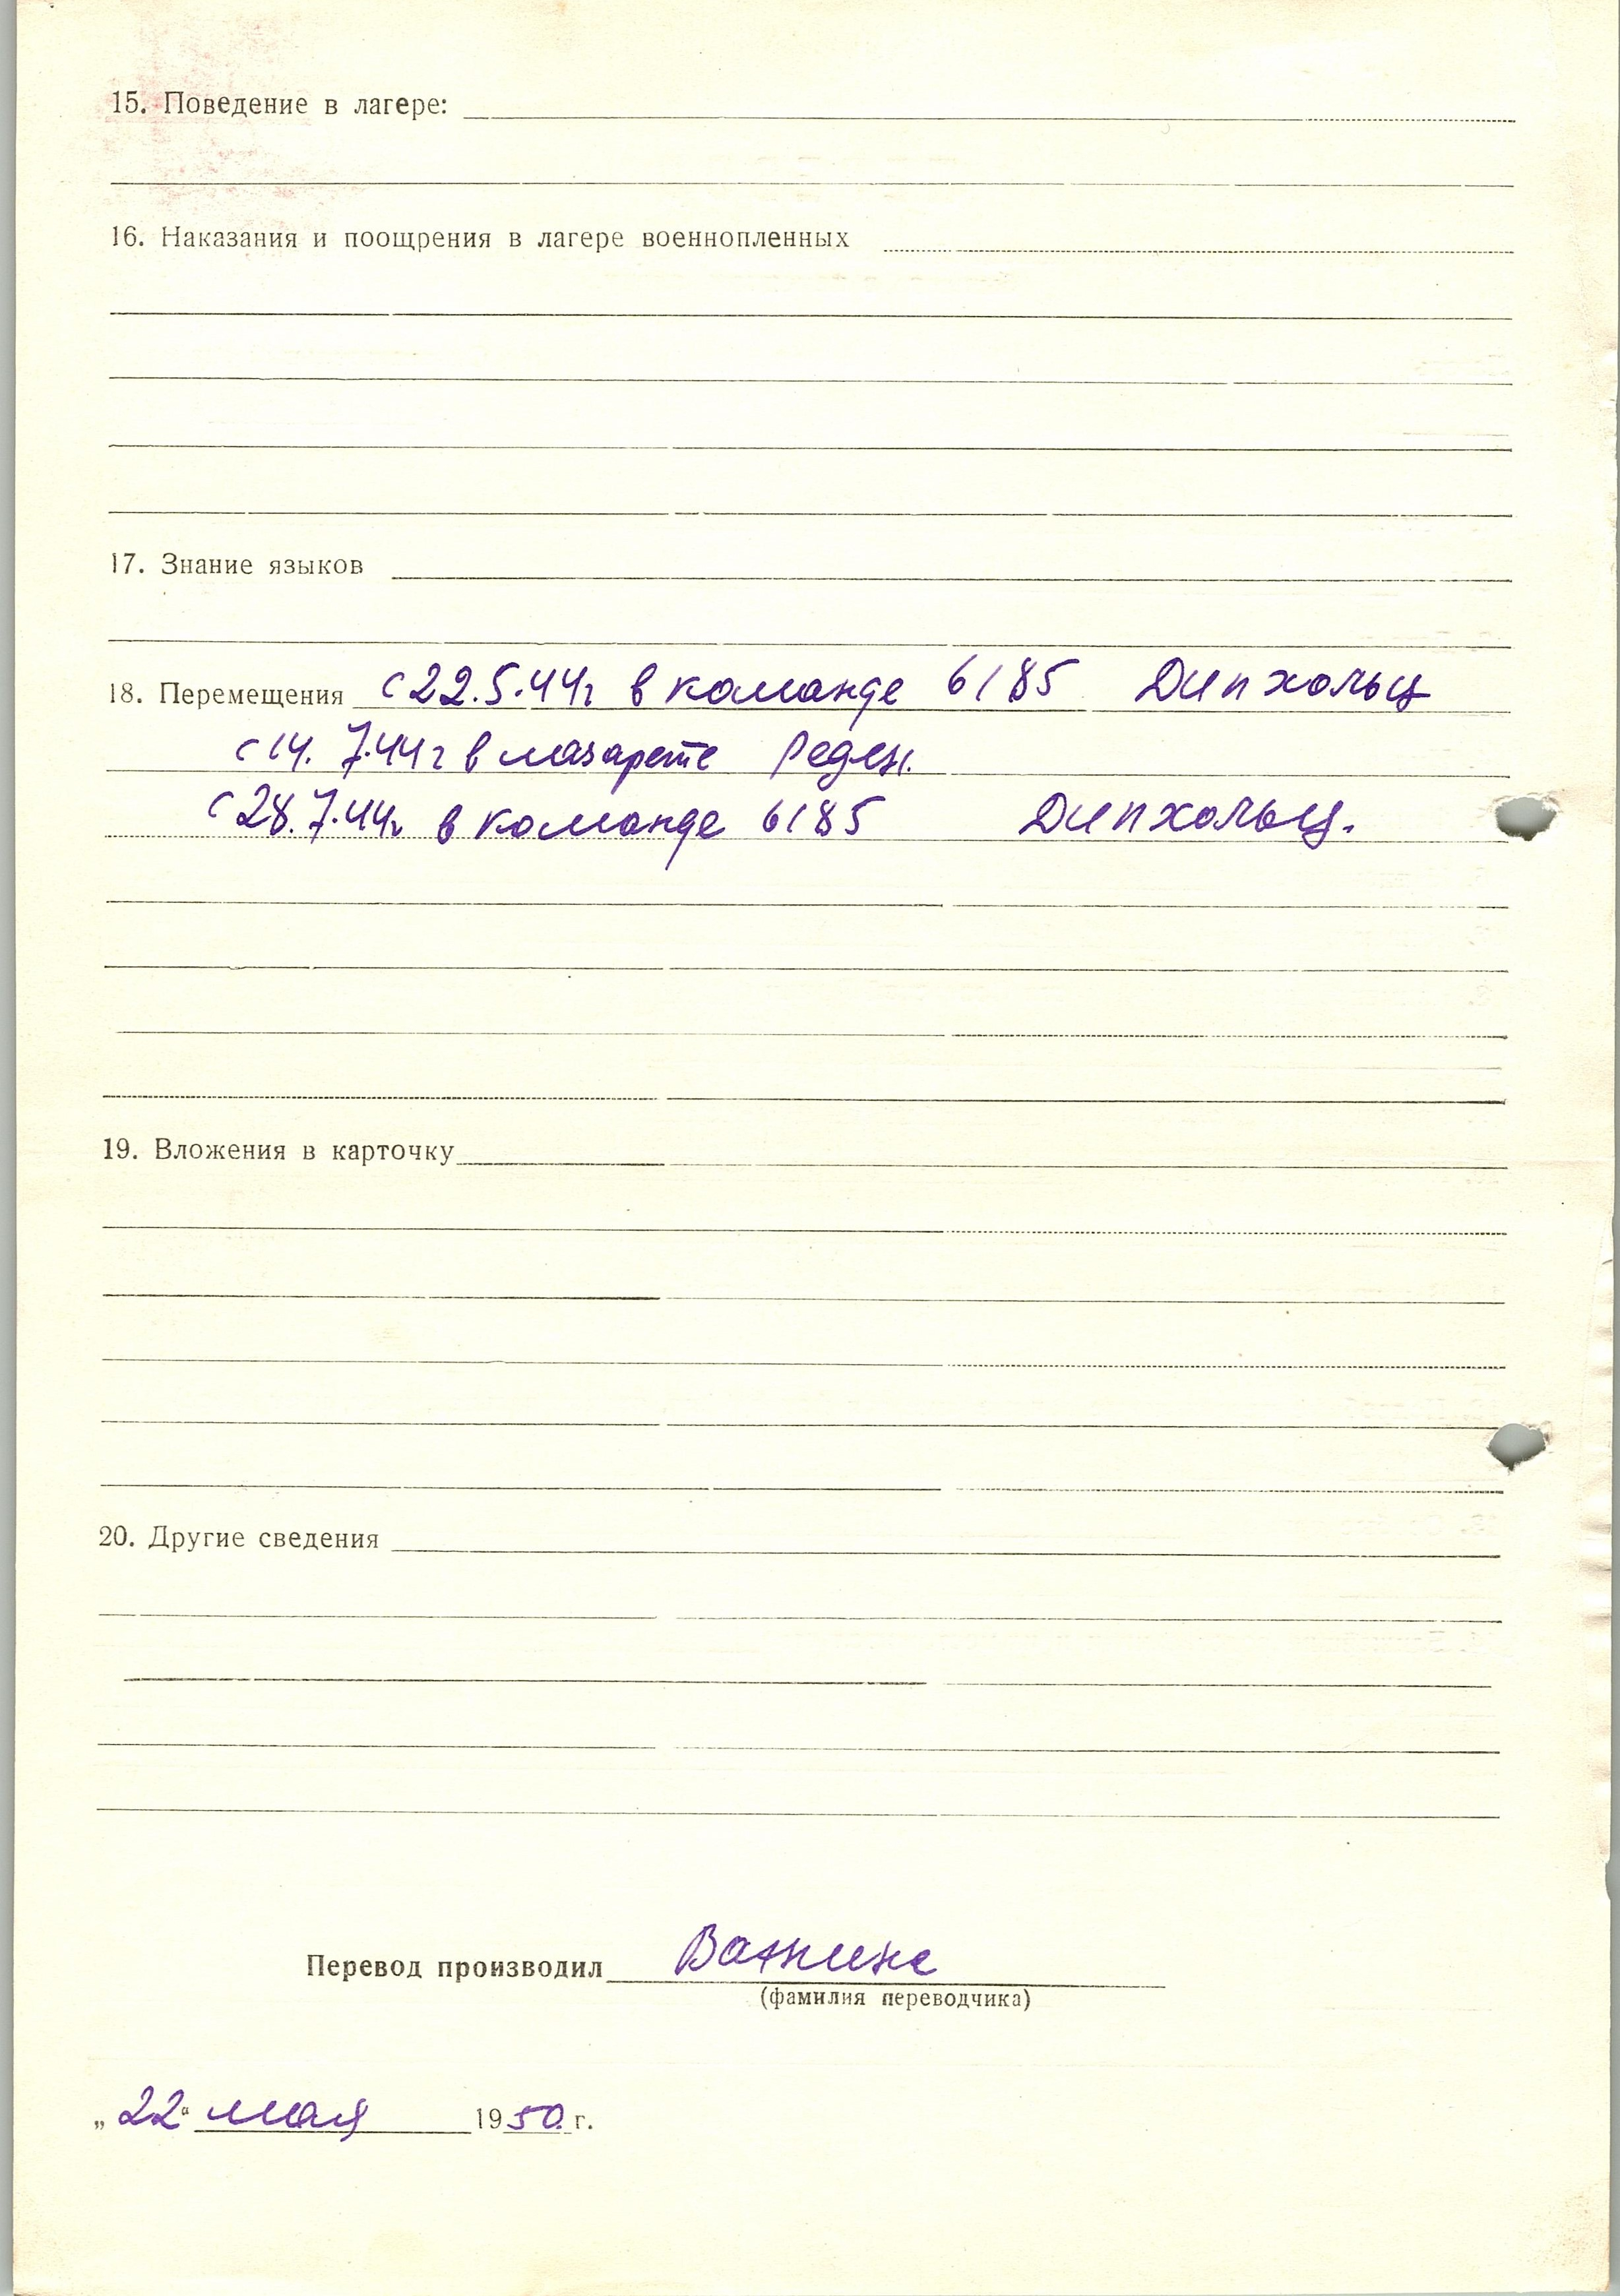 15. Поведение в лагере:
16. Наказания и поощрения в лагере военнопленных
17. Знание языков
18. Перемещения с 22.5.44г в команде 6185 Дипхольц
с 14.7.44г в лазарете Реден.
с 28.7.44г в команде 6185 Дипхольц.
19. Вложения в карточку
20. Другие сведения
Перевод производил
(фамилия переводчика)
„22“ мая 1950 г.